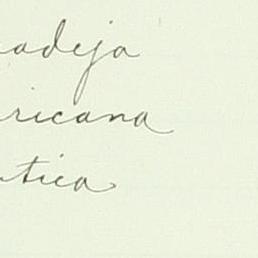 adeja
ricana
tica